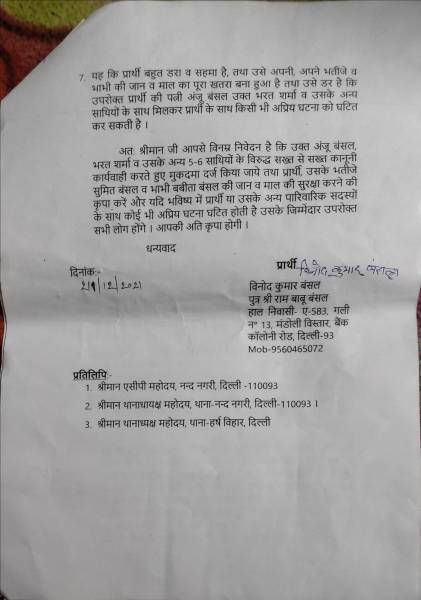 7. यह कि प्रार्थी बहुत डरा व सहमा है, तथा उसे अपनी, अपने भतीजे व
भाभी की जान व माल का पूरा खतरा बना हुआ है तथा उसे डर है कि
उपरोक्त प्रार्थी की पत्नी अंजू बंसल उक्त भरत शर्मा व उसके अन्य
साथियों के साथ मिलकर प्रार्थी के साथ किसी भी अप्रिय घटना को घटित
कर सकती है ।
अत: श्रीमान जी आपसे विनम्र निवेदन है कि उक्त अंजू बंसल,
भरत शर्मा व उसके अन्य 5-6 साथियों के विरुद्ध सख्त से सख्त कानूनी
कार्यवाही करते हुए मुकदमा दर्ज किया जाये तथा प्रार्थी, उसके भतीजे
सुमित बंसल व भाभी बबीता बंसल की जान व माल की सुरक्षा करने की
कृपा करें और यदि भविष्य में प्रार्थी या उसके अन्य पारिवारिक सदस्यों
के साथ कोई भी अप्रिय घटना घटित होती है उसके जिम्मेदार उपरोक्त
सभी लोग होंगे । आपकी अति कृपा होगी ।
धन्यवाद
दिनांक:-
प्रार्थी विनोद कुमार बंसल
21/12/2021
विनोद कुमार बंसल
पुत्र श्री राम बाबू बंसल
हाल निवासी- ए-583, गली
न० 13, मंडोली विस्तार, बैंक
कॉलोनी रोड, दिल्ली-93
Mob-9560465072
प्रतिलिपि:-
1. श्रीमान एसीपी महोदय, नन्द नगरी, दिल्ली -110093
2. श्रीमान थानाधायक्ष महोदय, थाना-नन्द नगरी, दिल्ली-110093 ।
3. श्रीमान थानाध्यक्ष महोदय, थाना-हर्ष विहार, दिल्ली